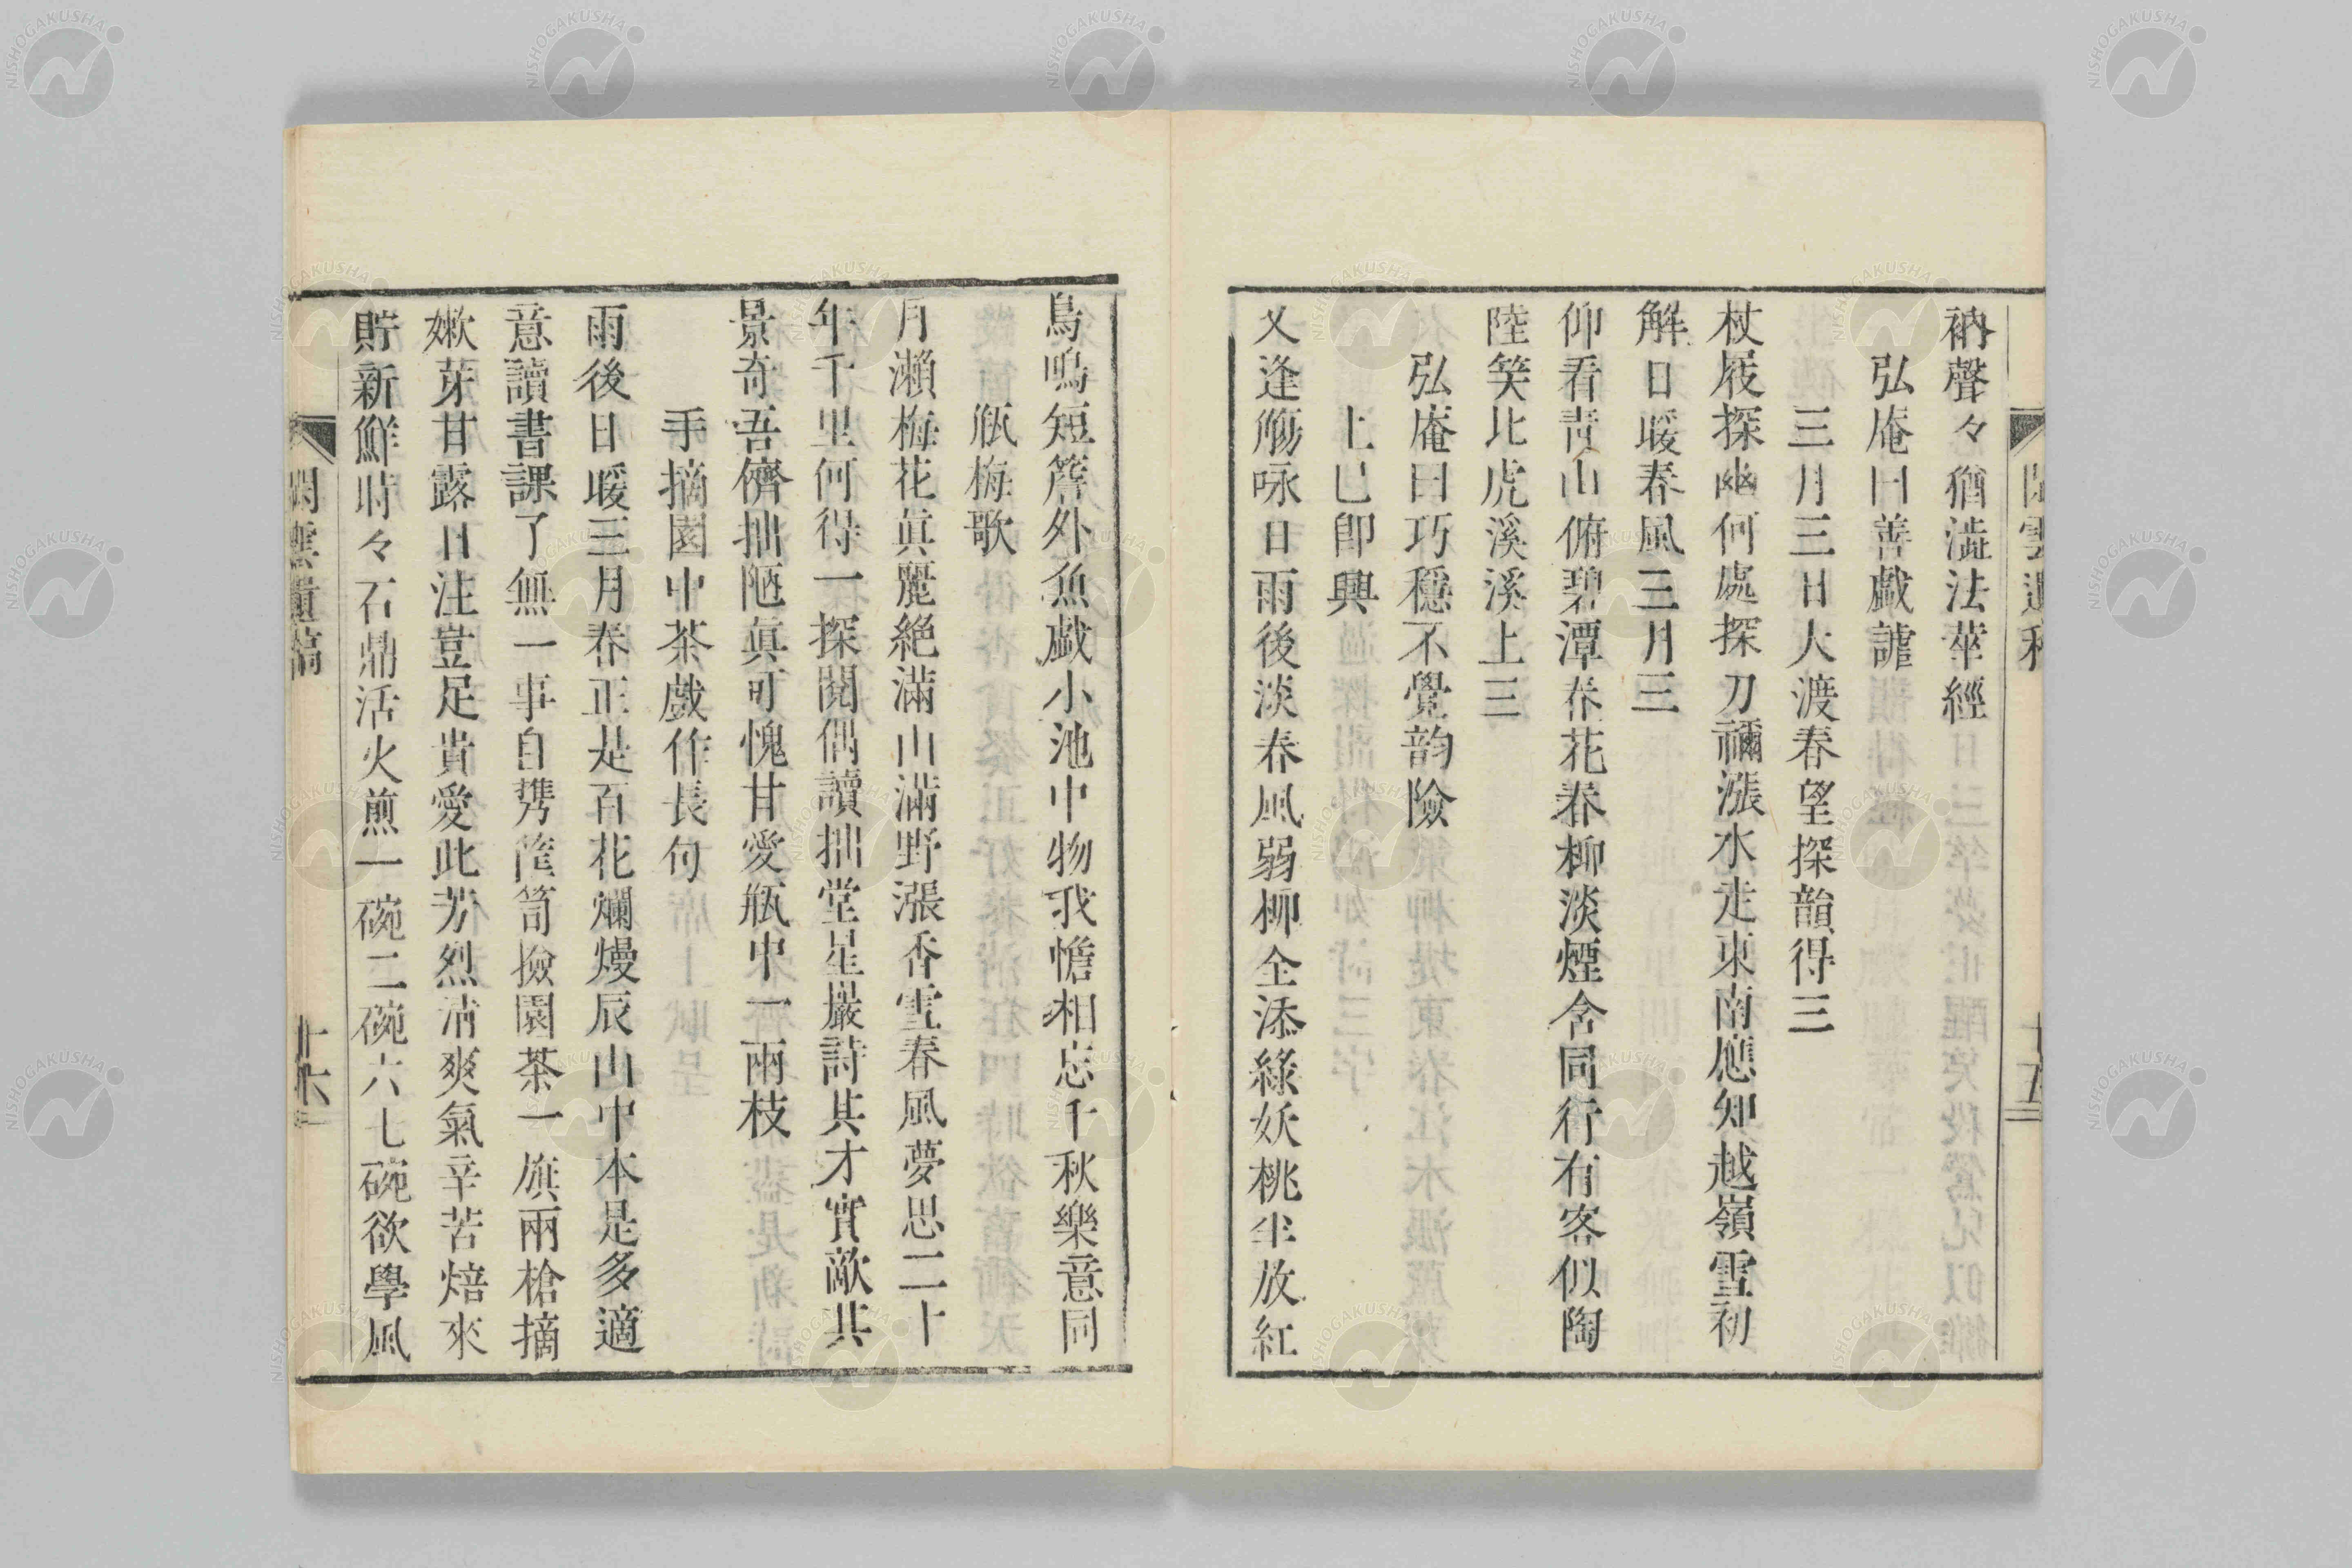 衲聲々猶澁法華經
弘庵曰善戯謔
三月三日大渡春望探韻得三
杖屐探幽何處探刀禰漲水走東南應知越嶺雪初
解日暖春風三月三
仰看靑山俯碧潭春花春柳淡煙含同行有客似陶
陸笑比虎溪溪上三
弘庵曰巧穩不覺韵險
上巳卽興
又逢觴咏日雨後淡春風弱柳全添綠妖桃半放紅
十五
鳥鳴短簷外魚戯小池中物我憺相忘千秋樂意同
瓶梅歌
月瀨梅花眞麗絶滿山滿野漲香雪春風夢思二十
年千里何得一探閱偶讀拙堂星巖詩其才實敵其
景奇吾儕拙陋眞可愧甘愛瓶中一兩枝
手摘園中茶戲作長句
雨後日暖三月春正是百花爛熳辰山中本是多適
意讀書課了無一事自携陸笥撿園茶一旗兩槍摘
嫩芽甘露日注豈足貴愛此芳烈淸爽氣辛苦焙來
貯新鮮時々石鼎活火煎一碗二碗六七碗欲學風
閑雲遺稿
十六